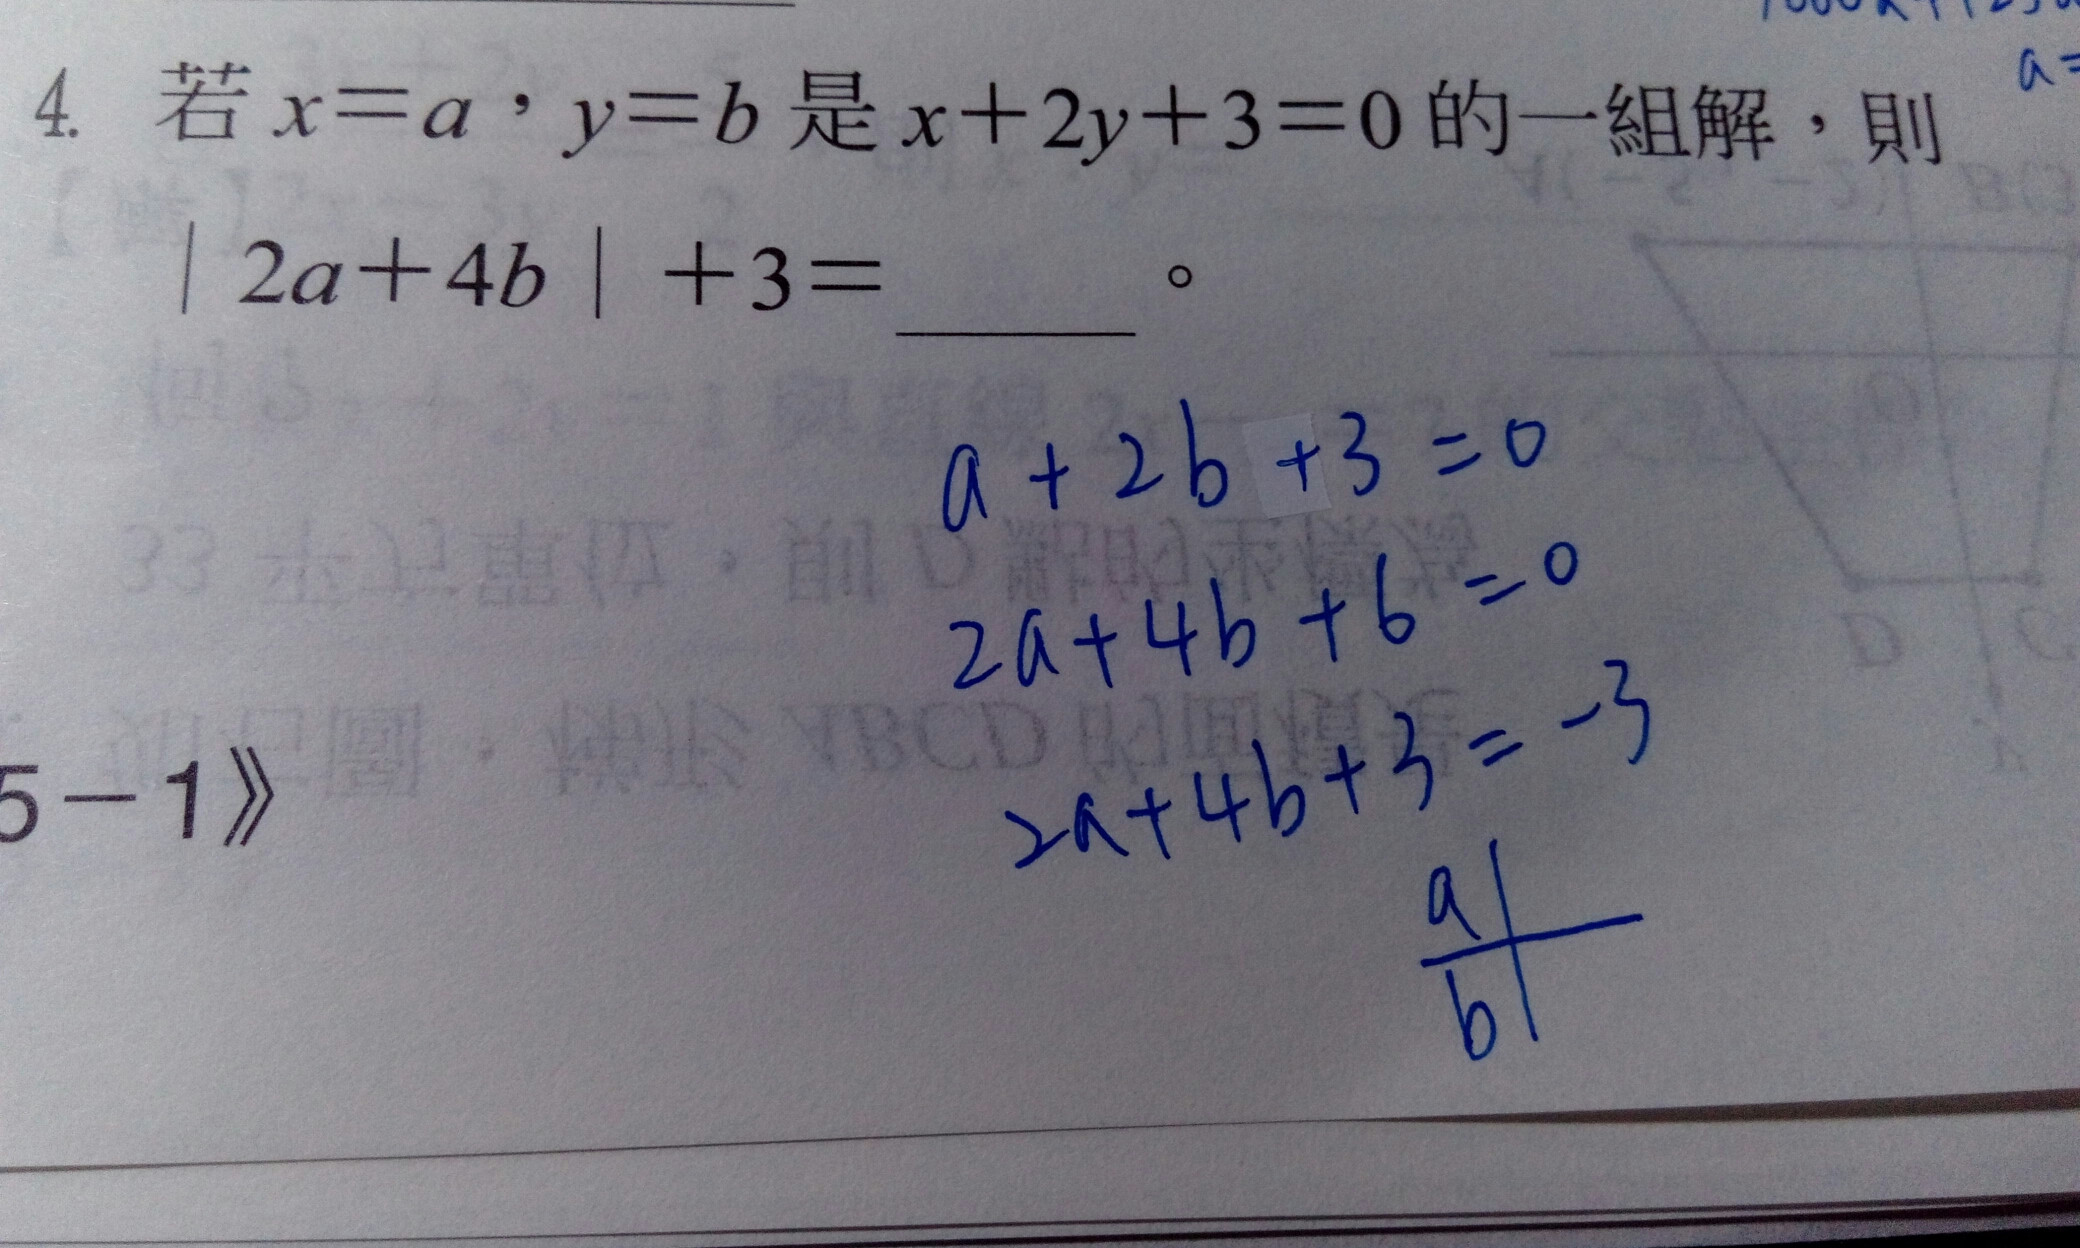 4. 若 x=a，y=b 是 x+2y+3=0 的一組解，則
| 2a+4b | +3=______。
a=
a+2b+3=0
2a+4b+6=0
2a+4b+3=-3
a
b
5-1》